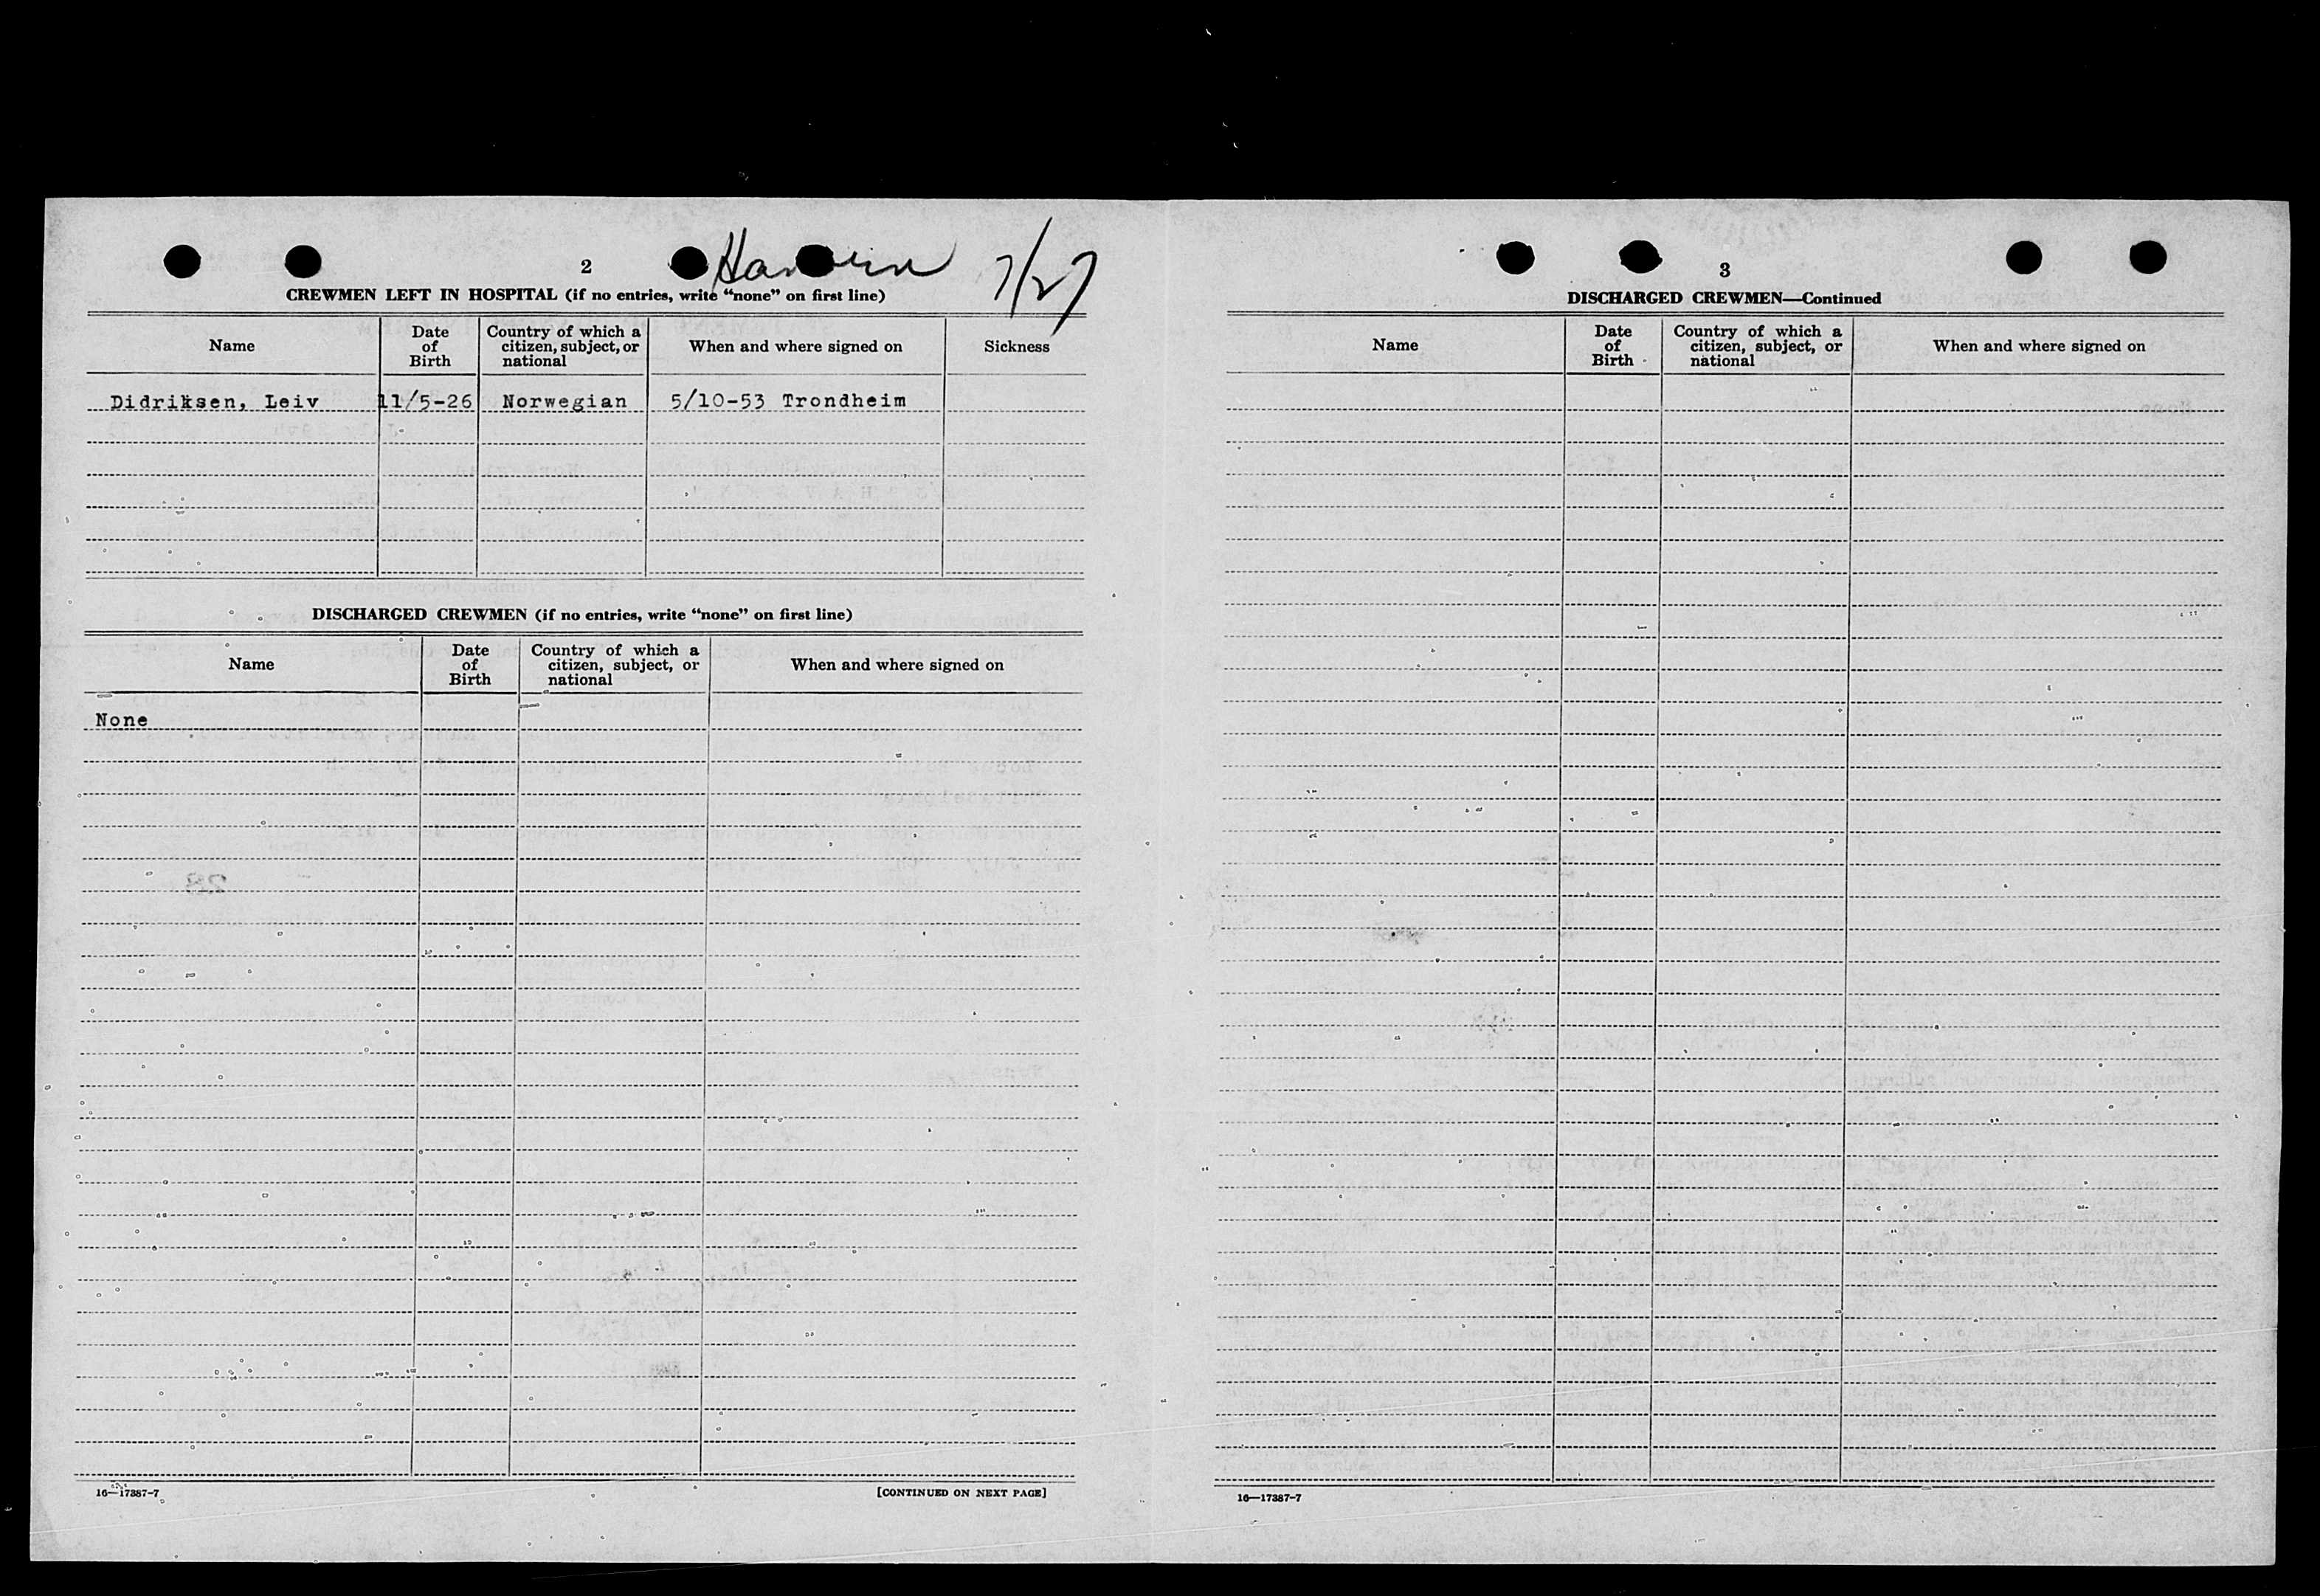 2
7/27
CREWMEN LEFT IN HOSPITAL (if no entries, write “none” on first line)
Name
Date of Birth
Country of which a citizen, subject, or national
When and where signed on
Sickness
Didriksen, Leiv 11/5-26 Norwegian 5/10-53 Trondheim
DISCHARGED CREWMEN (if no entries, write “none” on first line)
Name
Date of Birth
Country of which a citizen, subject, or national
When and where signed on
None
16—17387-7
[CONTINUED ON NEXT PAGE]
3
DISCHARGED CREWMEN—Continued
Name
Date of Birth
Country of which a citizen, subject, or national
When and where signed on
16—17387-7